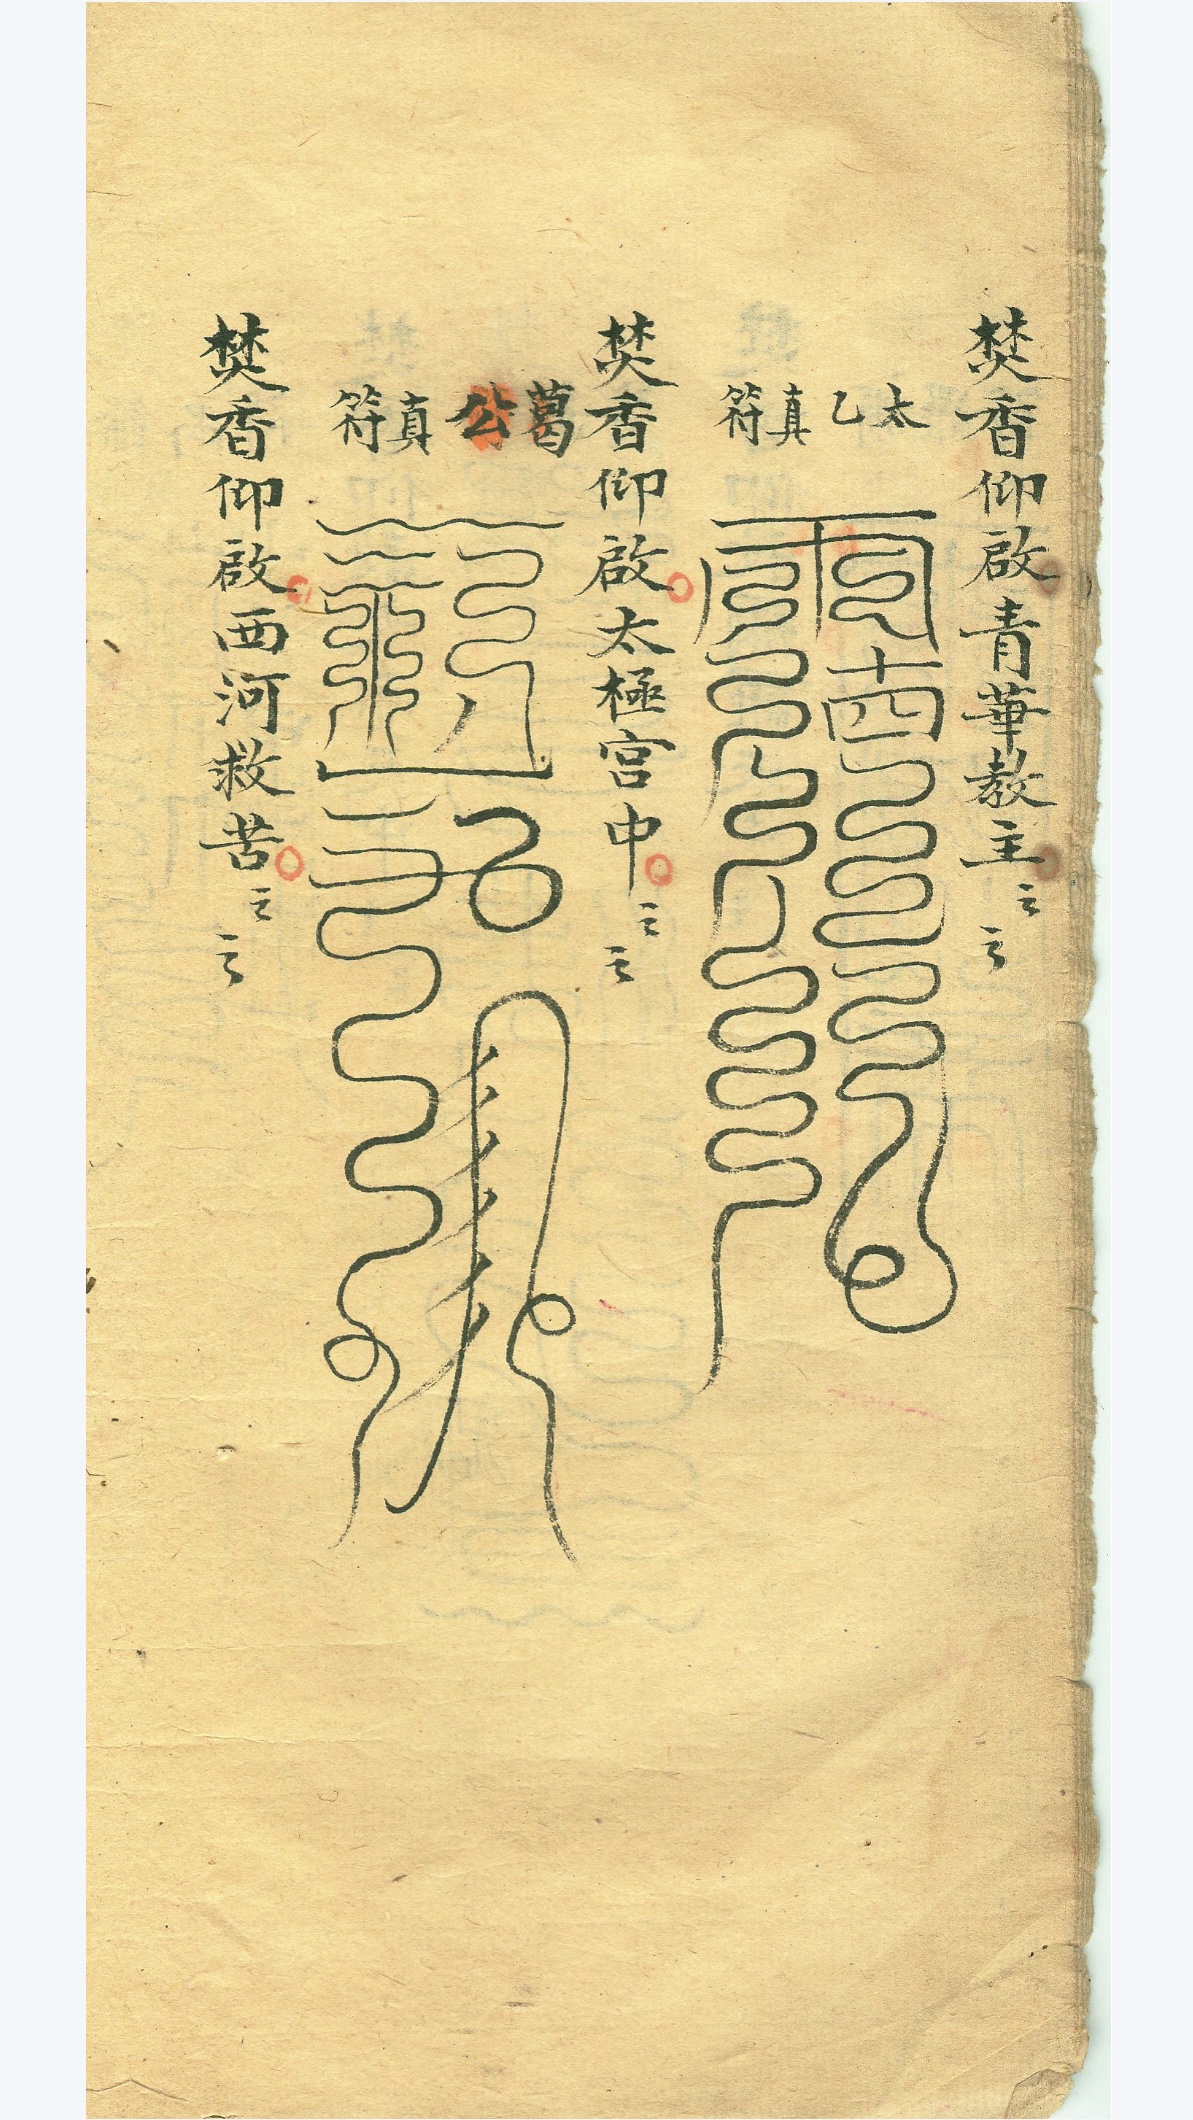 焚香仰啟青華教主云云
太乙真符
焚香仰啟太極宮中云云
葛公真符
焚香仰啟西河救苦云云